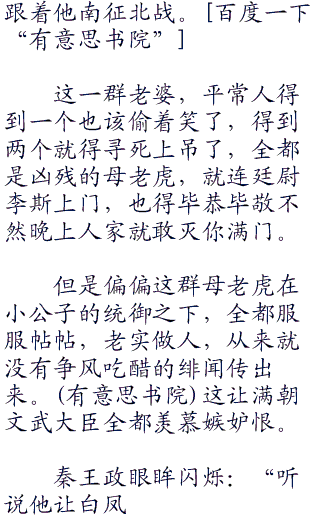 跟着他南征北战。[百度一下
“有意思书院”]
这一群老婆，平常人得
到一个也该偷着笑了，得到
两个就得寻死上吊了，全都
是凶残的母老虎，就连廷尉
李斯上门，也得毕恭毕敬不
然晚上人家就敢灭你满门。
但是偏偏这群母老虎在
小公子的统御之下，全都服
服帖帖，老实做人，从来就
没有争风吃醋的绯闻传出
来。(有意思书院)这让满朝
文武大臣全都羡慕嫉妒恨。
秦王政眼眸闪烁：“听
说他让白凤